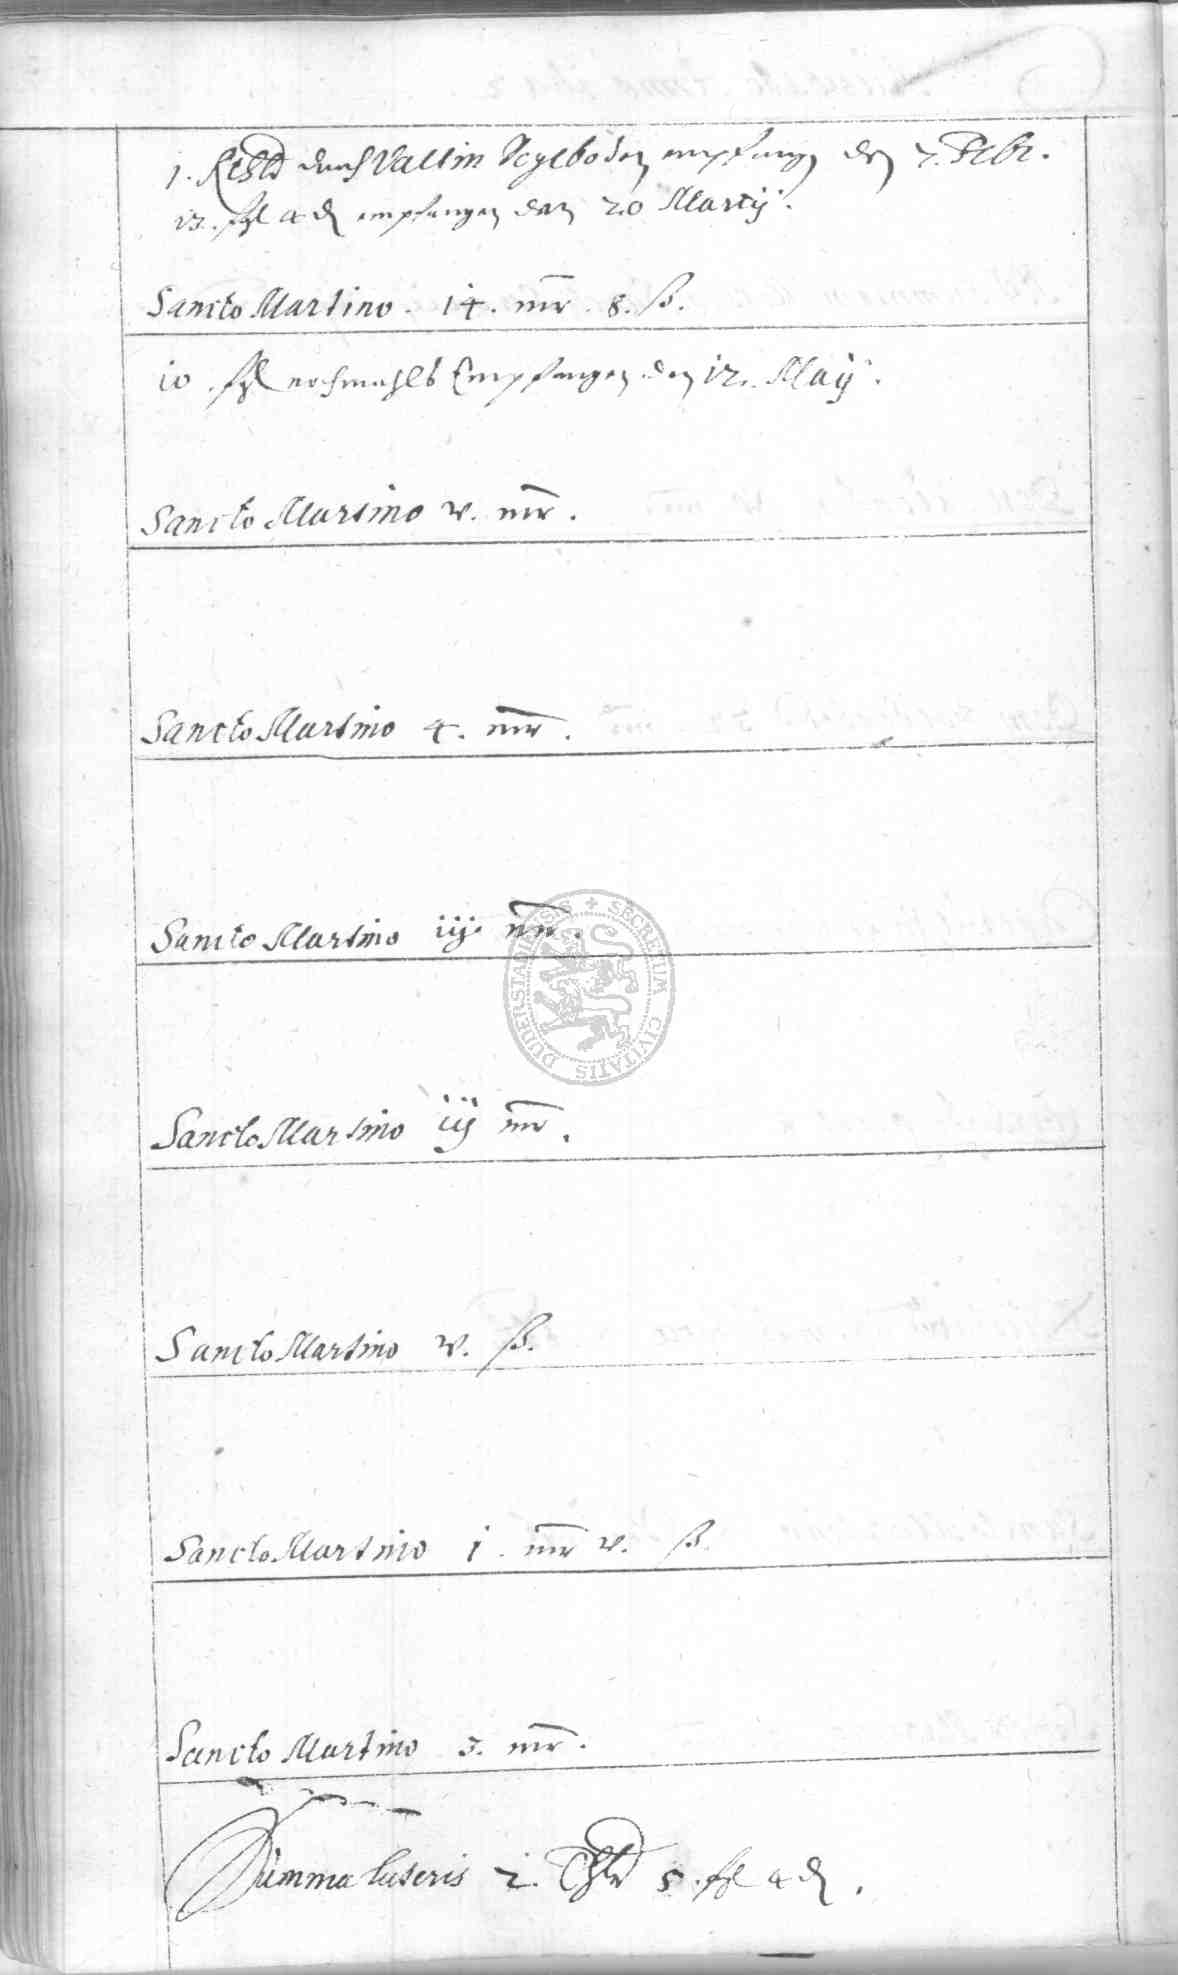 1. Rthlr durch Valtin Heylboden empfangen den 7. Febr.
13. ßgl 4 ₰ empfangen den 20 Martij.
Sancto Martino. 14. mr. 8. ß.
10 ßgl nochmahls Empfangen den 12. Maij.
Sancto Martino v. mr.
Sancto Martino 4. mr.
Sancto Martino iij. mr.
Sancto Martino iij mr.
Sancto Martino v. ß.
Sancto Martino i. mr v. ß.
Sancto Martino 3. mr.
Summa lateris 2. Thlr 5. ßgl 4 ₰.
SECRETUM CIVITATIS DUDERSTADIENSIS